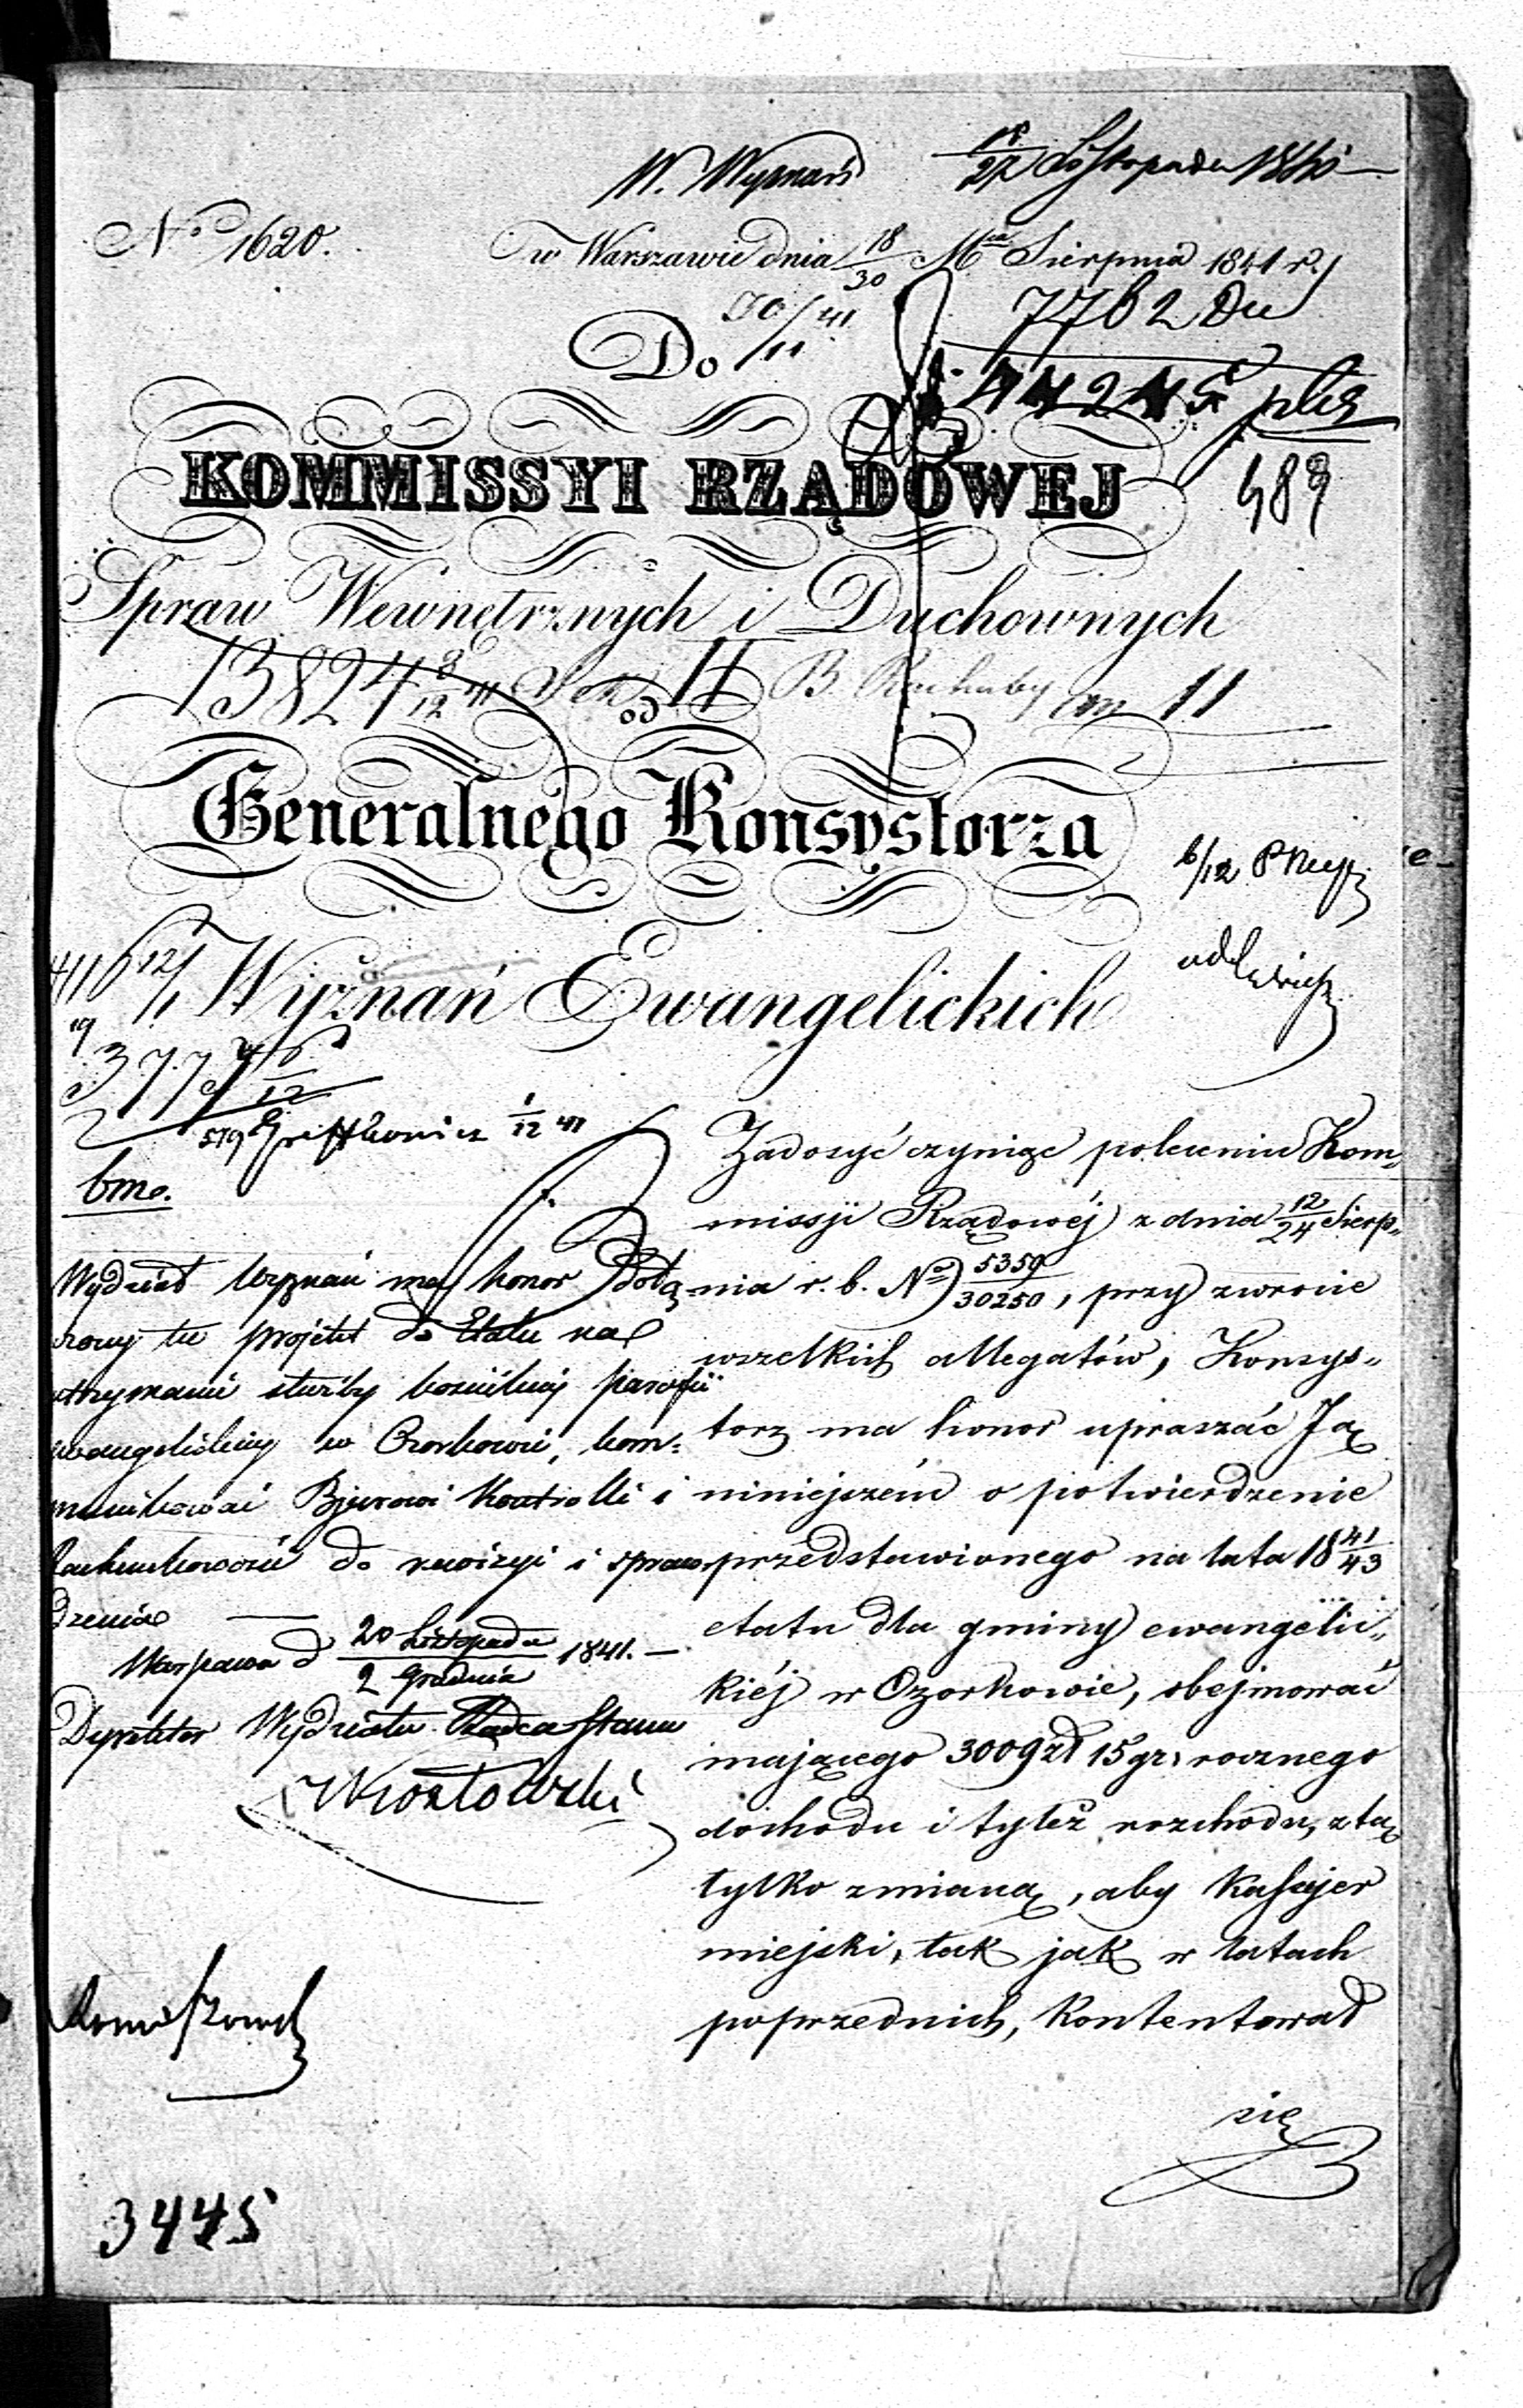 W. Wyznań 18/27 Listopada 1841
No 1620. w Warszawie dnia 18/30 Mca Sierpnia 1841 r.
30/11 41 7762 Du
Do
44245
KOMMISSYI RZĄDOWEJ
489
Spraw Wewnętrznych i Duchownych
13824 8/12 41 od B. Rachuby 11
Generalnego Konsystorza
6/12
Wyznań Ewangelickich
519 1/12 41
bmo.
Wydział Wyznań ma honor dołą-
czony tu projekt do Etatu na
utrzymanie służby kościelnej parafii
ewangelickiej w Ozorkowie, kom-
munikować Bjurowi Kontrolli i
Rachunkowości do rewizyi i spraw-
dzenia —
Warszawa d 20 Listopada/2 Grudnia 1841. —
Dyrektor Wydziału Radca Stanu
Zadosyć czyniąc poleceniu Kom„
missji Rządowéj z dnia 12/24 Sierp„
nia r. b. No 5359/30250, przy zwrocie
wszelkich allegatów, Konsys„
torz ma honor upraszać Ją
niniejszém o potwierdzenie
przedstawionego na lata 18 41/43
etatu dla gminy ewangelic„
kiéj w Ozorkowie, obejmować
mającego 3009 zł 15 gr. rocznego
dochodu i tyleż rozchodu, z tą
tylko zmianą, aby Kassjer
miejski, tak jak w latach
poprzednich, kontentował
się
3445